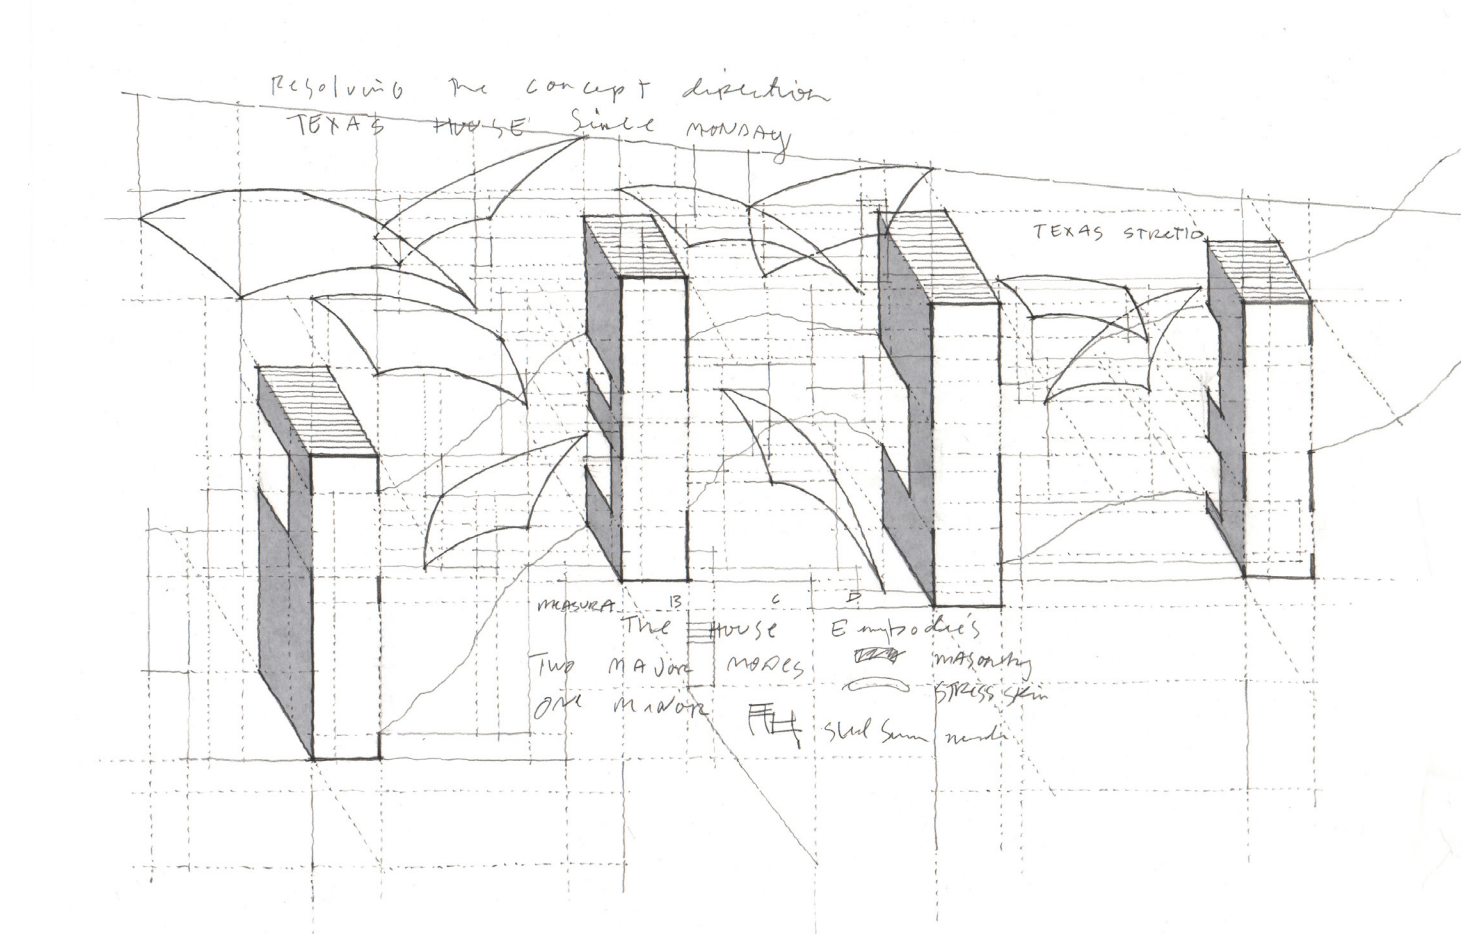 Resolving the concept direction
TEXAS HOUSE Since MONDAY
TEXAS STRETTO
MEASURA B C D
The House Embodies
TWO MAJOR MODES masonry
stress skin
ONE MINOR